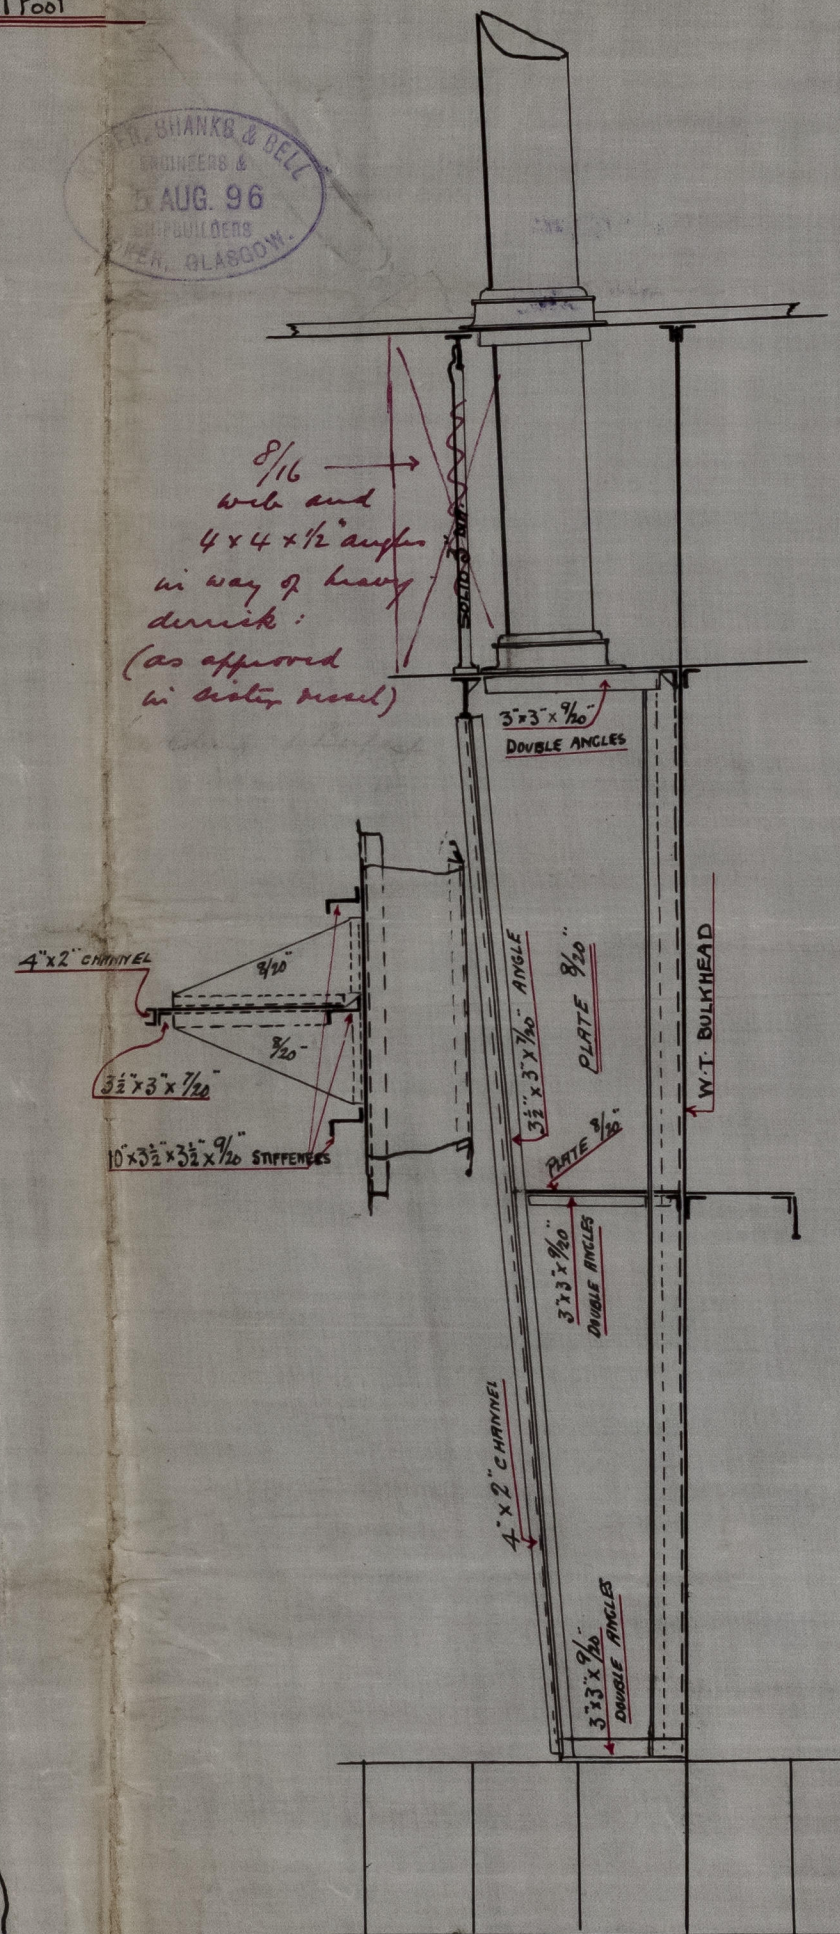 SHANKS & BELL
ENGINEERS &
AUG. 96
SHIPBUILDERS
GLASGOW.
8/16
web and
4 x 4 x 1/2" angles
in way of heavy
derrick :
(as approved
in sister vessel)
SOLID 3" DIA.
3" x 3" x 9/20"
DOUBLE ANGLES
4" x 2" CHANNEL
8/20"
8/20"
3½" x 3" x 7/20"
10" x 3½" x 3½" x 9/20" STIFFENERS
3½" x 3" x 7/20" ANGLE
PLATE 8/20"
W.T. BULKHEAD
PLATE 8/20"
3" x 3" x 9/20"
DOUBLE ANGLES
4" x 2" CHANNEL
3" x 3" x 9/20"
DOUBLE ANGLES